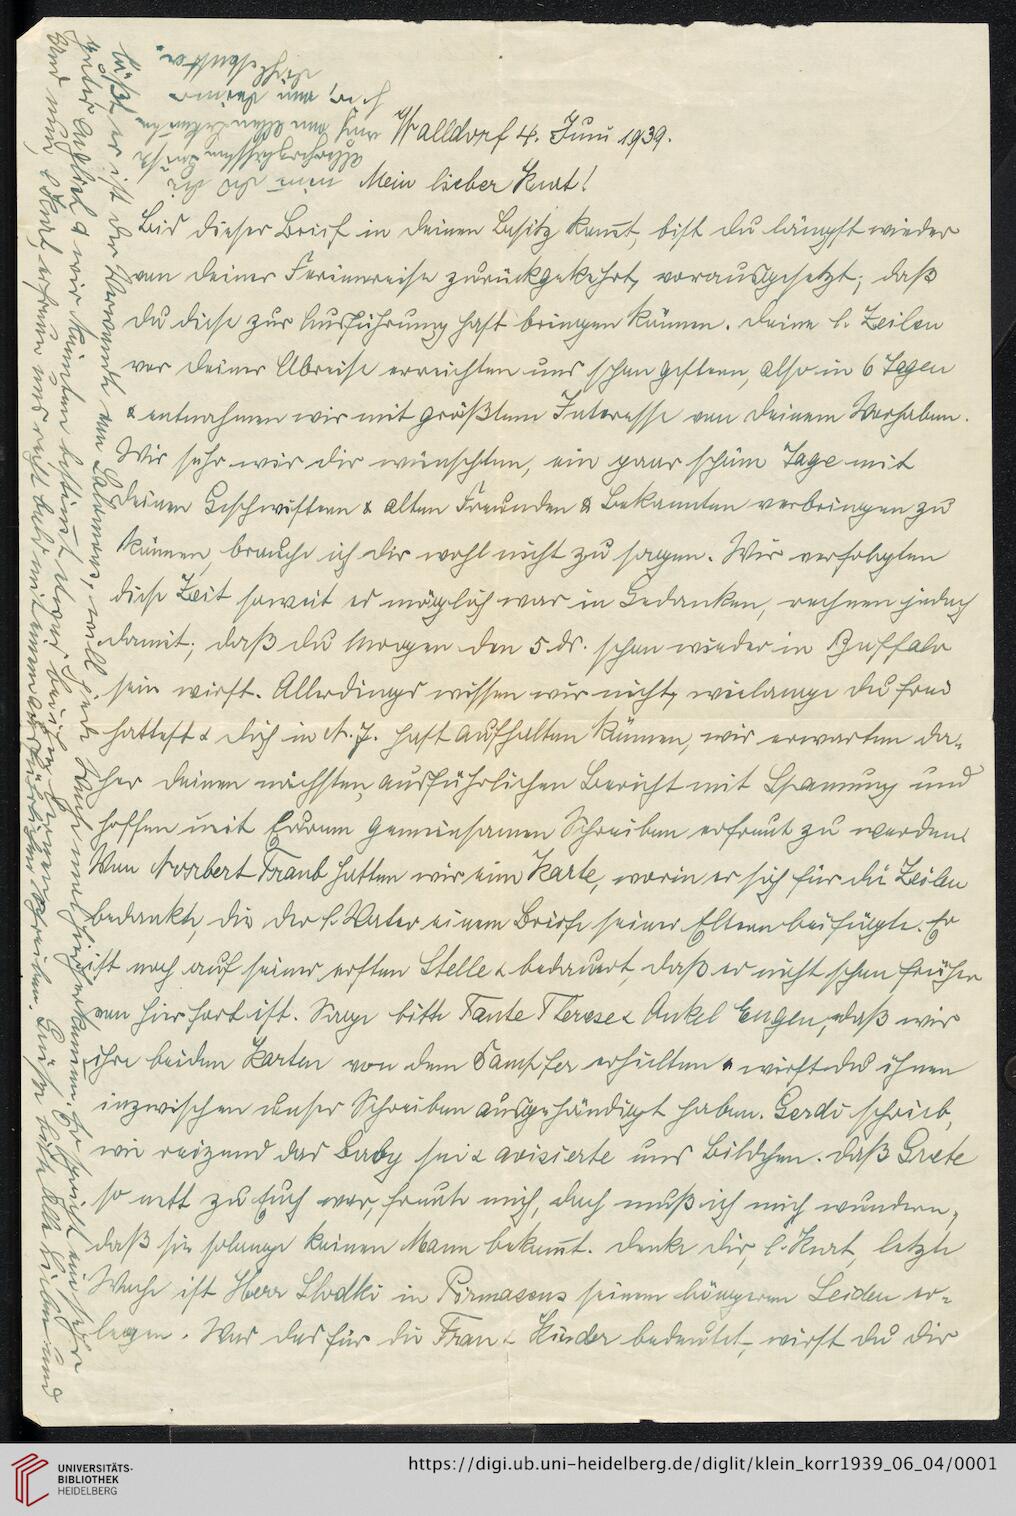 Walldorf 4. Juni 1939.
Mein lieber Kurt!
Bis dieser Brief in deinen Besitz kommt, bist du längst wieder
von deiner Ferienreise zurückgekehrt, vorausgesetzt, daß
du diese zur Ausführung hast bringen können. Deine l. Zeilen
vor deiner Abreise erreichten uns schon gestern, also in 6 Tagen
& entnahmen wir mit größtem Interesse von deinem Vorhaben.
Wie sehr wir dir wünschten, ein paar schöne Tage mit
deinen Geschwistern & alten Freunden & Bekannten verbringen zu
können, brauche ich dir wohl nicht zu sagen. Wir verfolgten
diese Zeit soweit es möglich war in Gedanken, rechnen jedoch
damit, daß du Morgen den 5 ds. schon wieder in Buffalo
sein wirst. Allerdings wissen wir nicht, wielange du frei
hattest & dich in N.J. hast aufhalten können, wir erwarten da-
her deinen nächsten, ausführlichen Bericht mit Spannung und
hoffen mit Eurem gemeinsamen Schreiben erfreut zu werden.
Von Norbert Traub hatten wir eine Karte, worin er sich für die Zeilen
bedankte, die der l. Vater einem Briefe seiner Eltern beifügte. Er
ist noch auf seiner ersten Stelle & bedauert, daß er nicht schon früher
von hier fort ist. Sage bitte Tante Therese & Onkel Eugen, daß wir
ihre beiden Karten von dem Dampfer erhielten & wirst du ihnen
inzwischen unser Schreiben ausgehändigt haben. Gerdi schrieb,
wie reizend das Baby sei & avisierte uns Bildchen. Daß Grete
so nett zu Euch war, freute mich, doch muß ich mich wundern,
daß sie solange keinen Mann bekommt. Denke dir, l. Kurt, letzte
Woche ist Herr Slodki in Pirmasens seinem längeren Leiden er-
legen. Was das für die Frau & Kinder bedeutet, wirst du dir
läßt er ist der Verwandte von
guter
und nun, l. Kurt,
Schreiben. Grüße bitte alle Lieben und
UNIVERSITÄTS-
BIBLIOTHEK
HEIDELBERG
https://digi.ub.uni-heidelberg.de/diglit/klein_korr1939_06_04/0001